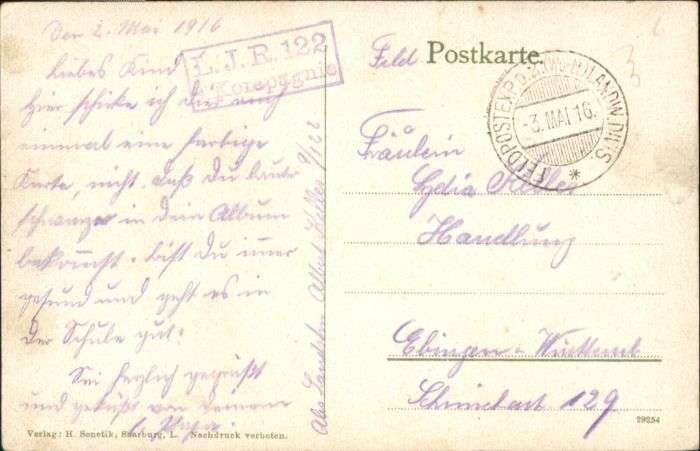 Den 2. Mai 1916
Liebes Kind
Hier schicke ich dir auch
einmal eine farbige
Karte, nicht daß Du lauter
schwarze in dein Album
bekommst. bist Du immer
gesund und geht es in
der Schule gut?
Sei herzlich gegrüßt
und geküßt von deinem
l. Papa.
L. J. R. 122
Kompagnie
Abs. Landstm Albert Keller 9/122
Feld Postkarte.
FELDPOSTEXP. D. LANDW. DIVIS.
-3. MAI 16.
3
Fräulein
Lydia Keller
Handlung
Ebingen - Württemb
129
29254
Verlag: H. Senetik, Saarburg, L. Nachdruck verboten.